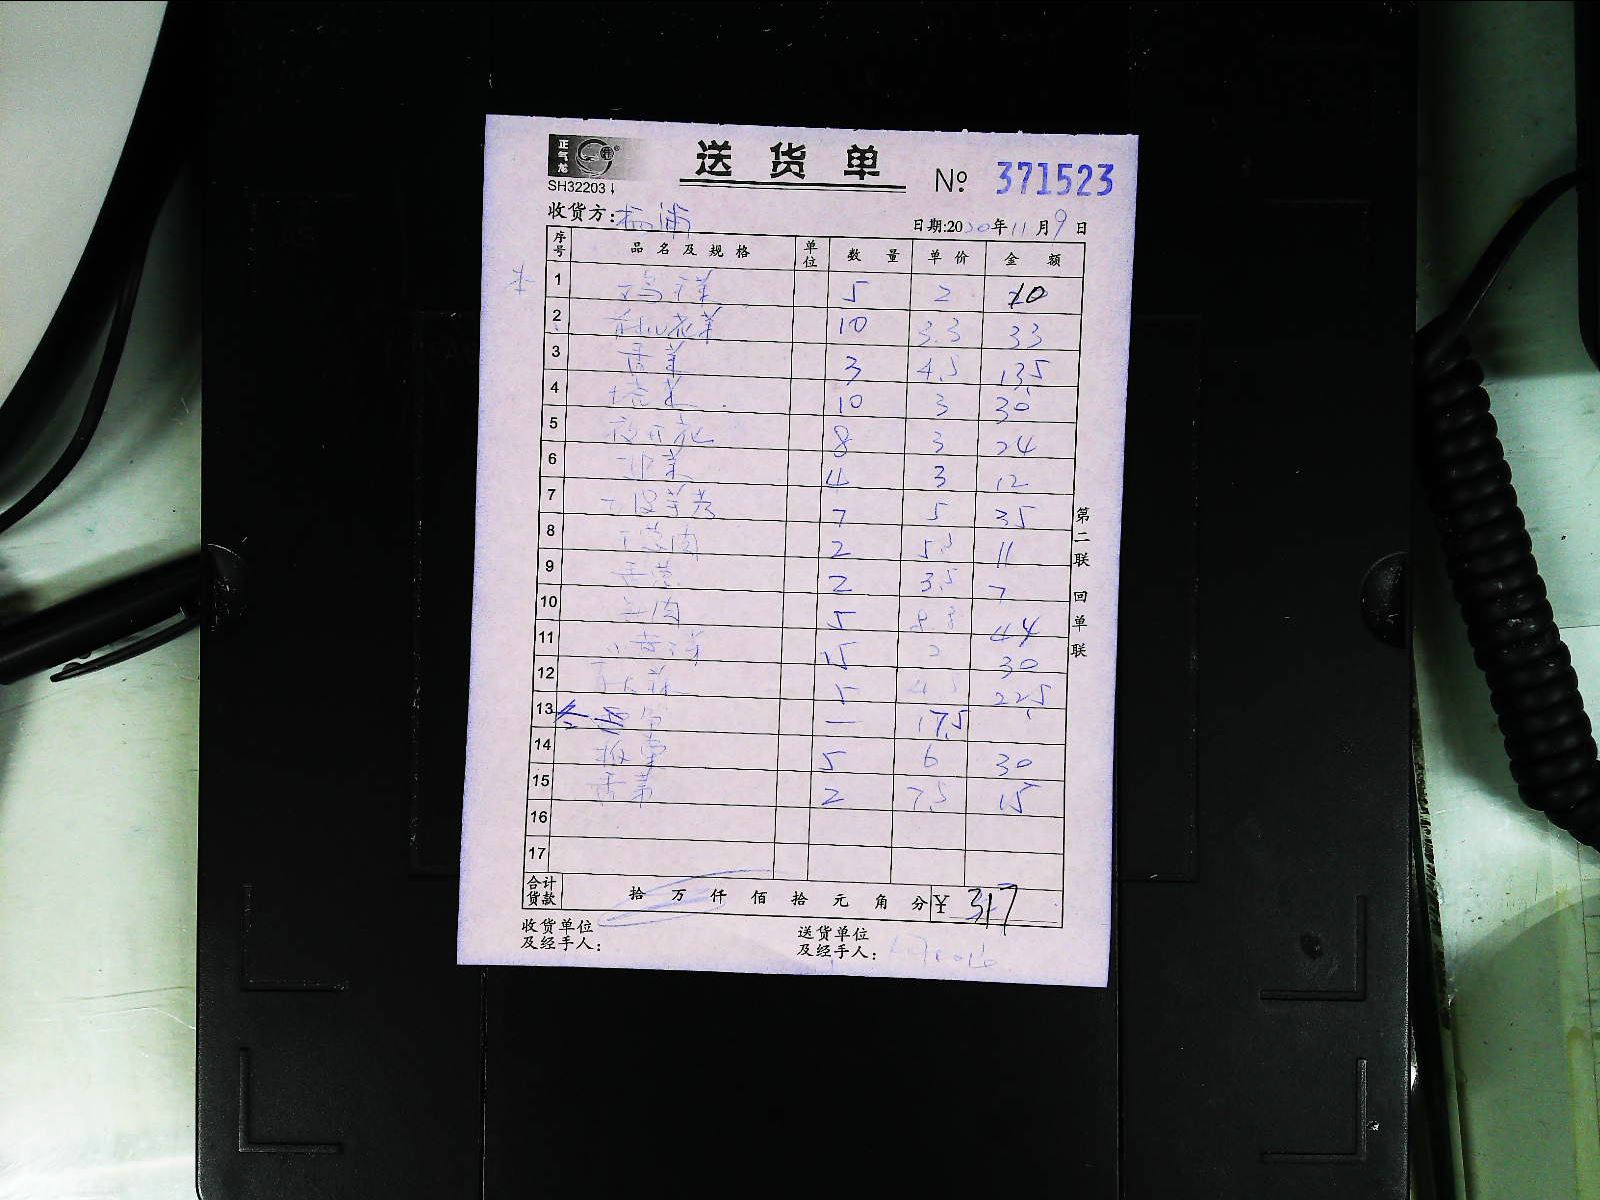 正气龙
送货单
№ 371523
SH32203
收货方: 杨浦
日期:2020年11月9日
序号 品名及规格 单位 数量 单价 金额
1 鸡毛菜 5 2 10
2 有机花菜 10 3.3 33
3 香菜 3 4.5 13.5
4 塔菜 10 3 30
5 夜开花 8 3 24
6 卫菜 4 3 12
7 去皮芋艿 7 5 35
8 2 5.5 11
9 香葱 2 3.5 7
10 5 8.8 44
11 15 2 30
12 5 4.5 22.5
13 一 17.5
14 5 6 30
15 香 2 7.5 15
16
17
合计货款 拾 万 仟 佰 拾 元 角 分 ¥ 317
收货单位及经手人:
送货单位及经手人:
第二联 回单联